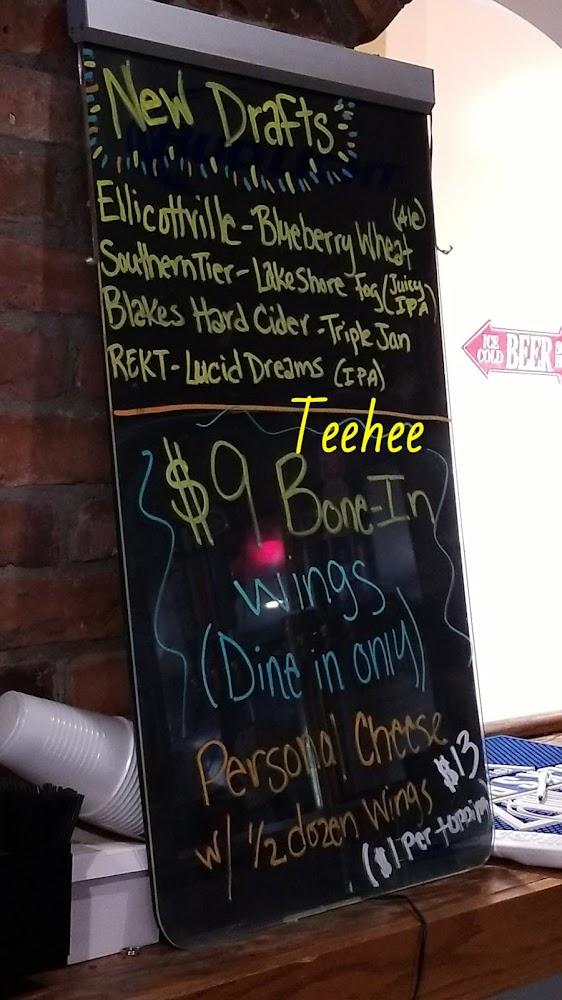 New Drafts
Ellicottville - Blueberry Wheat (Ale)
Southern Tier - Lake Shore Fog (Juicy IPA)
Blakes Hard Cider - Triple Jam
REKT - Lucid Dreams (IPA)
Teehee
$9 Bone-In
Wings
(Dine in only)
Personal Cheese
w/ 1/2 dozen Wings $13
($1 per topping)
ICE COLD BEER